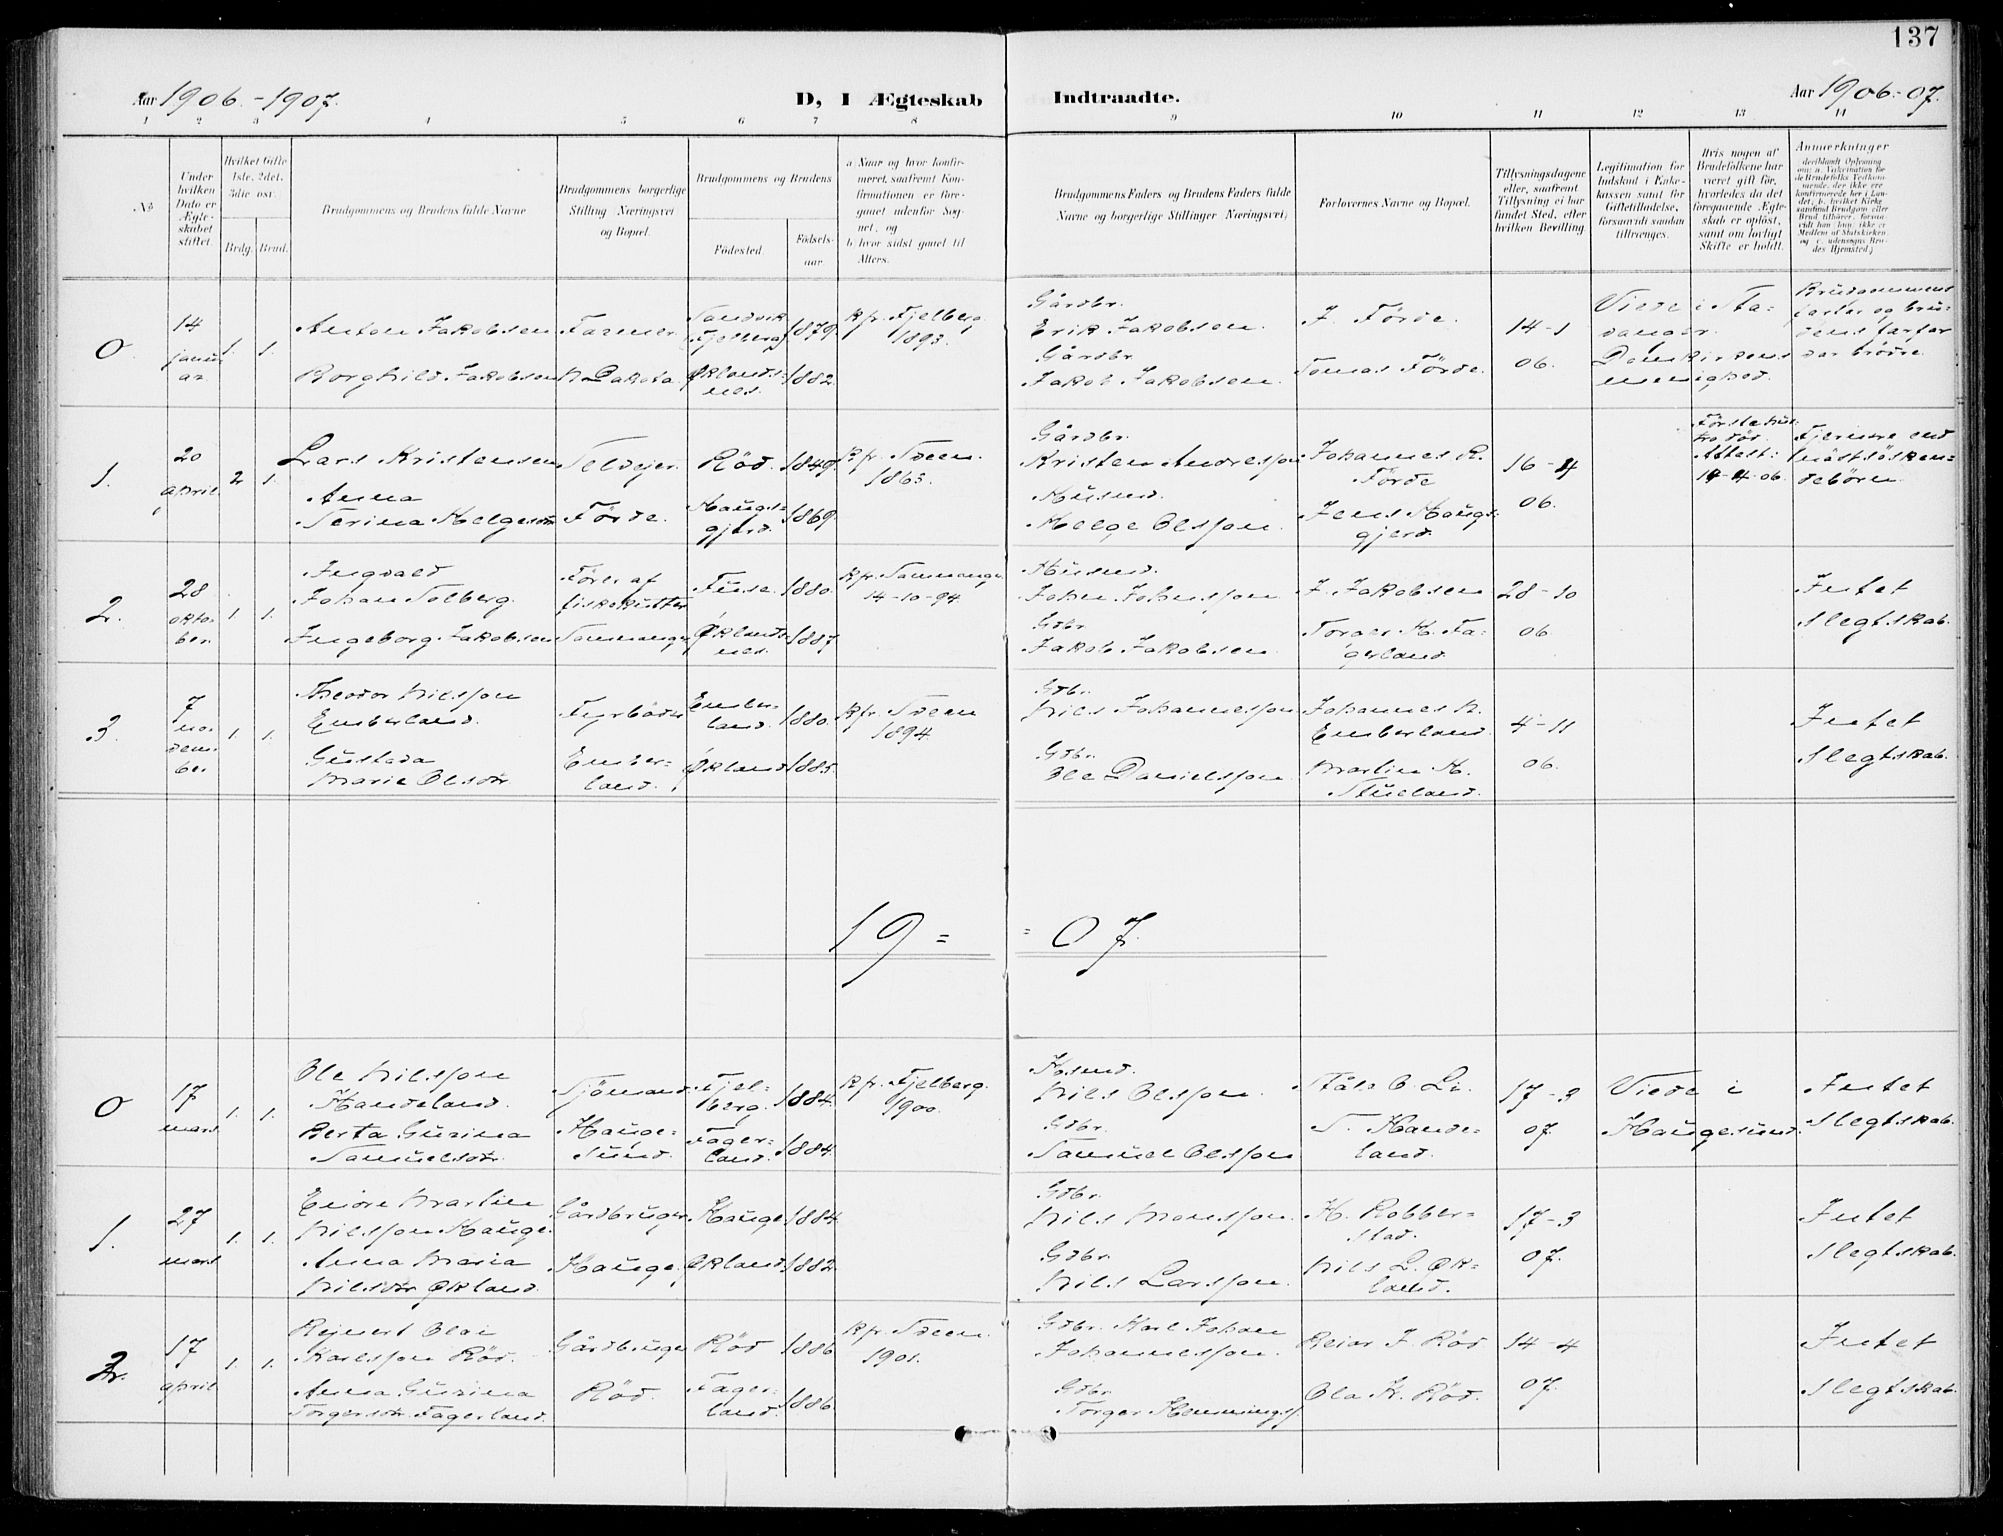 137
Aar 1906.-1907.
D, I Ægteskab
Indtraadte.
Aar 1906.-07.
1 2 3 4 5 6 7 8 9 10 11 12 13 14
No
Under hvilken Dato er Ægteskabet stiftet.
Hvilket Gifte 1ste, 2det, 3die osv.
Brdg. Brud.
Brudgommens og Brudens fulde Navne
Brudgommens borgerlige Stilling Næringsvei og Bopæl.
Brudgommens og Brudens
Fødested.
Fødselsaar.
a. Naar og hvor konfirmeret, saafremt Konfirmationen er foregaaet udenfor Sognet, og
b. hvor sidst gaaet til Alters.
Brudgommens Faders og Brudens Faders fulde Navne og borgerlige Stillinger Næringsvei;
Forlovernes Navne og Bopæl.
Tillysningsdagene eller, saafremt Tillysning ei har fundet Sted, efter hvilken Bevilling.
Legitimation for Indskud i Enkekassen samt for Giftetilladelse, forsaavidt saadan tiltrænges.
Hvis nogen af Brudefolkene har været gift før, hvorledes da det foregaaende Ægteskab er opløst, samt om lovligt Skifte er holdt.
Anmerkninger
0. 14 januar 1. 1.
Anton Jakobsen
Borghild Jakobsen
Farmer
N Dakota.
Sandvik Fjelberg 1879.
Øklandsnes. 1882.
Kfr. Fjelberg 1893.
Gårdbr. Erik Jakobsen.
Gårdbr. Jakob Jakobsen.
J. Förde.
Tomas Förde.
14-1 06.
Viede i Stavanger Domkirkens menighed.
Brudgommens farfar og brudens farfar var brödre.
1. 20 april 2. 1.
Lars Kristensen
Anna Serina Helgesdtr
Selveier.
Förde.
Röd. 1849.
Haugsgjerd. 1869.
Kfr. Sveen. 1865.
Gårdbr. Kristen Andresson
Husmd. Helge Olsson.
Johannes R. Förde
Jens Haugsgjerd.
16-4 06.
Förste hustro död. Attest: 14-4-06.
Fjernere end næstsöskendebörn.
2. 28 oktober. 1. 1.
Ingvald Johan Solberg.
Ingeborg Jakobsen
Förer af fiskekutter
Sammanger
Fuse. 1880.
Øklandsnes. 1887.
Kfr. Sammanger 14-10-94.
Husmd. Johan Johnsson
Gdbr. Jakob Jakobsen.
J. Jakobsen
Torger H. Fagerland.
28-10 06.
Intet Slegtskab.
3. 7 november 1. 1.
Theodor Nilsson Emberland.
Gustava Marie Olsdtr
Fyrböder
Emberland.
Emberland. 1880.
Økland 1885.
Kfr. Sveen 1894.
Gdbr. Nils Johannesson
Gdbr. Ole Danielsson.
Johannes N. Emberland
Martin H. Stueland.
4-11 06.
Intet Slegtskab.
19=
=07.
0 17 mars 1. 1.
Ole Nilsson Handeland.
Berta Gurina Samuelsdtr.
Sjömand.
Haugesund.
Fjelberg. 1884.
Fagerland. 1884.
Kfr. Fjelberg. 1900.
Hsmd. Nils Olsson.
Gdbr. Samuel Olsson
Ståle O. Li.
T. Handeland.
17-3 07.
Viede i Haugesund.
Intet Slegtskab.
1. 27 mars 1. 1.
Enore Martin Nilsson Hauge.
Anna Maria Nilsdtr Økland.
Gårdbruger
Hauge.
Hauge 1884.
Økland 1882.
Gdbr. Nils Monsson.
Gdbr. Nils Larsson.
H. Robberstad.
Nils L. Økland.
17-3 07.
Intet Slegtskab.
2. 17 april 1. 1.
Reinert Olai Karlsson Röd.
Anna Gurina Torgersdtr. Fagerland.
Gårdbruger
Röd.
Röd 1886
Fagerland. 1886.
Kfr. Sveen. 1901.
Gdbr. Karl Johan Johannesson.
Gdbr. Torger Hennings.
Reiar J. Röd
Ola K. Röd.
14-4 07.
Intet Slegtskab.